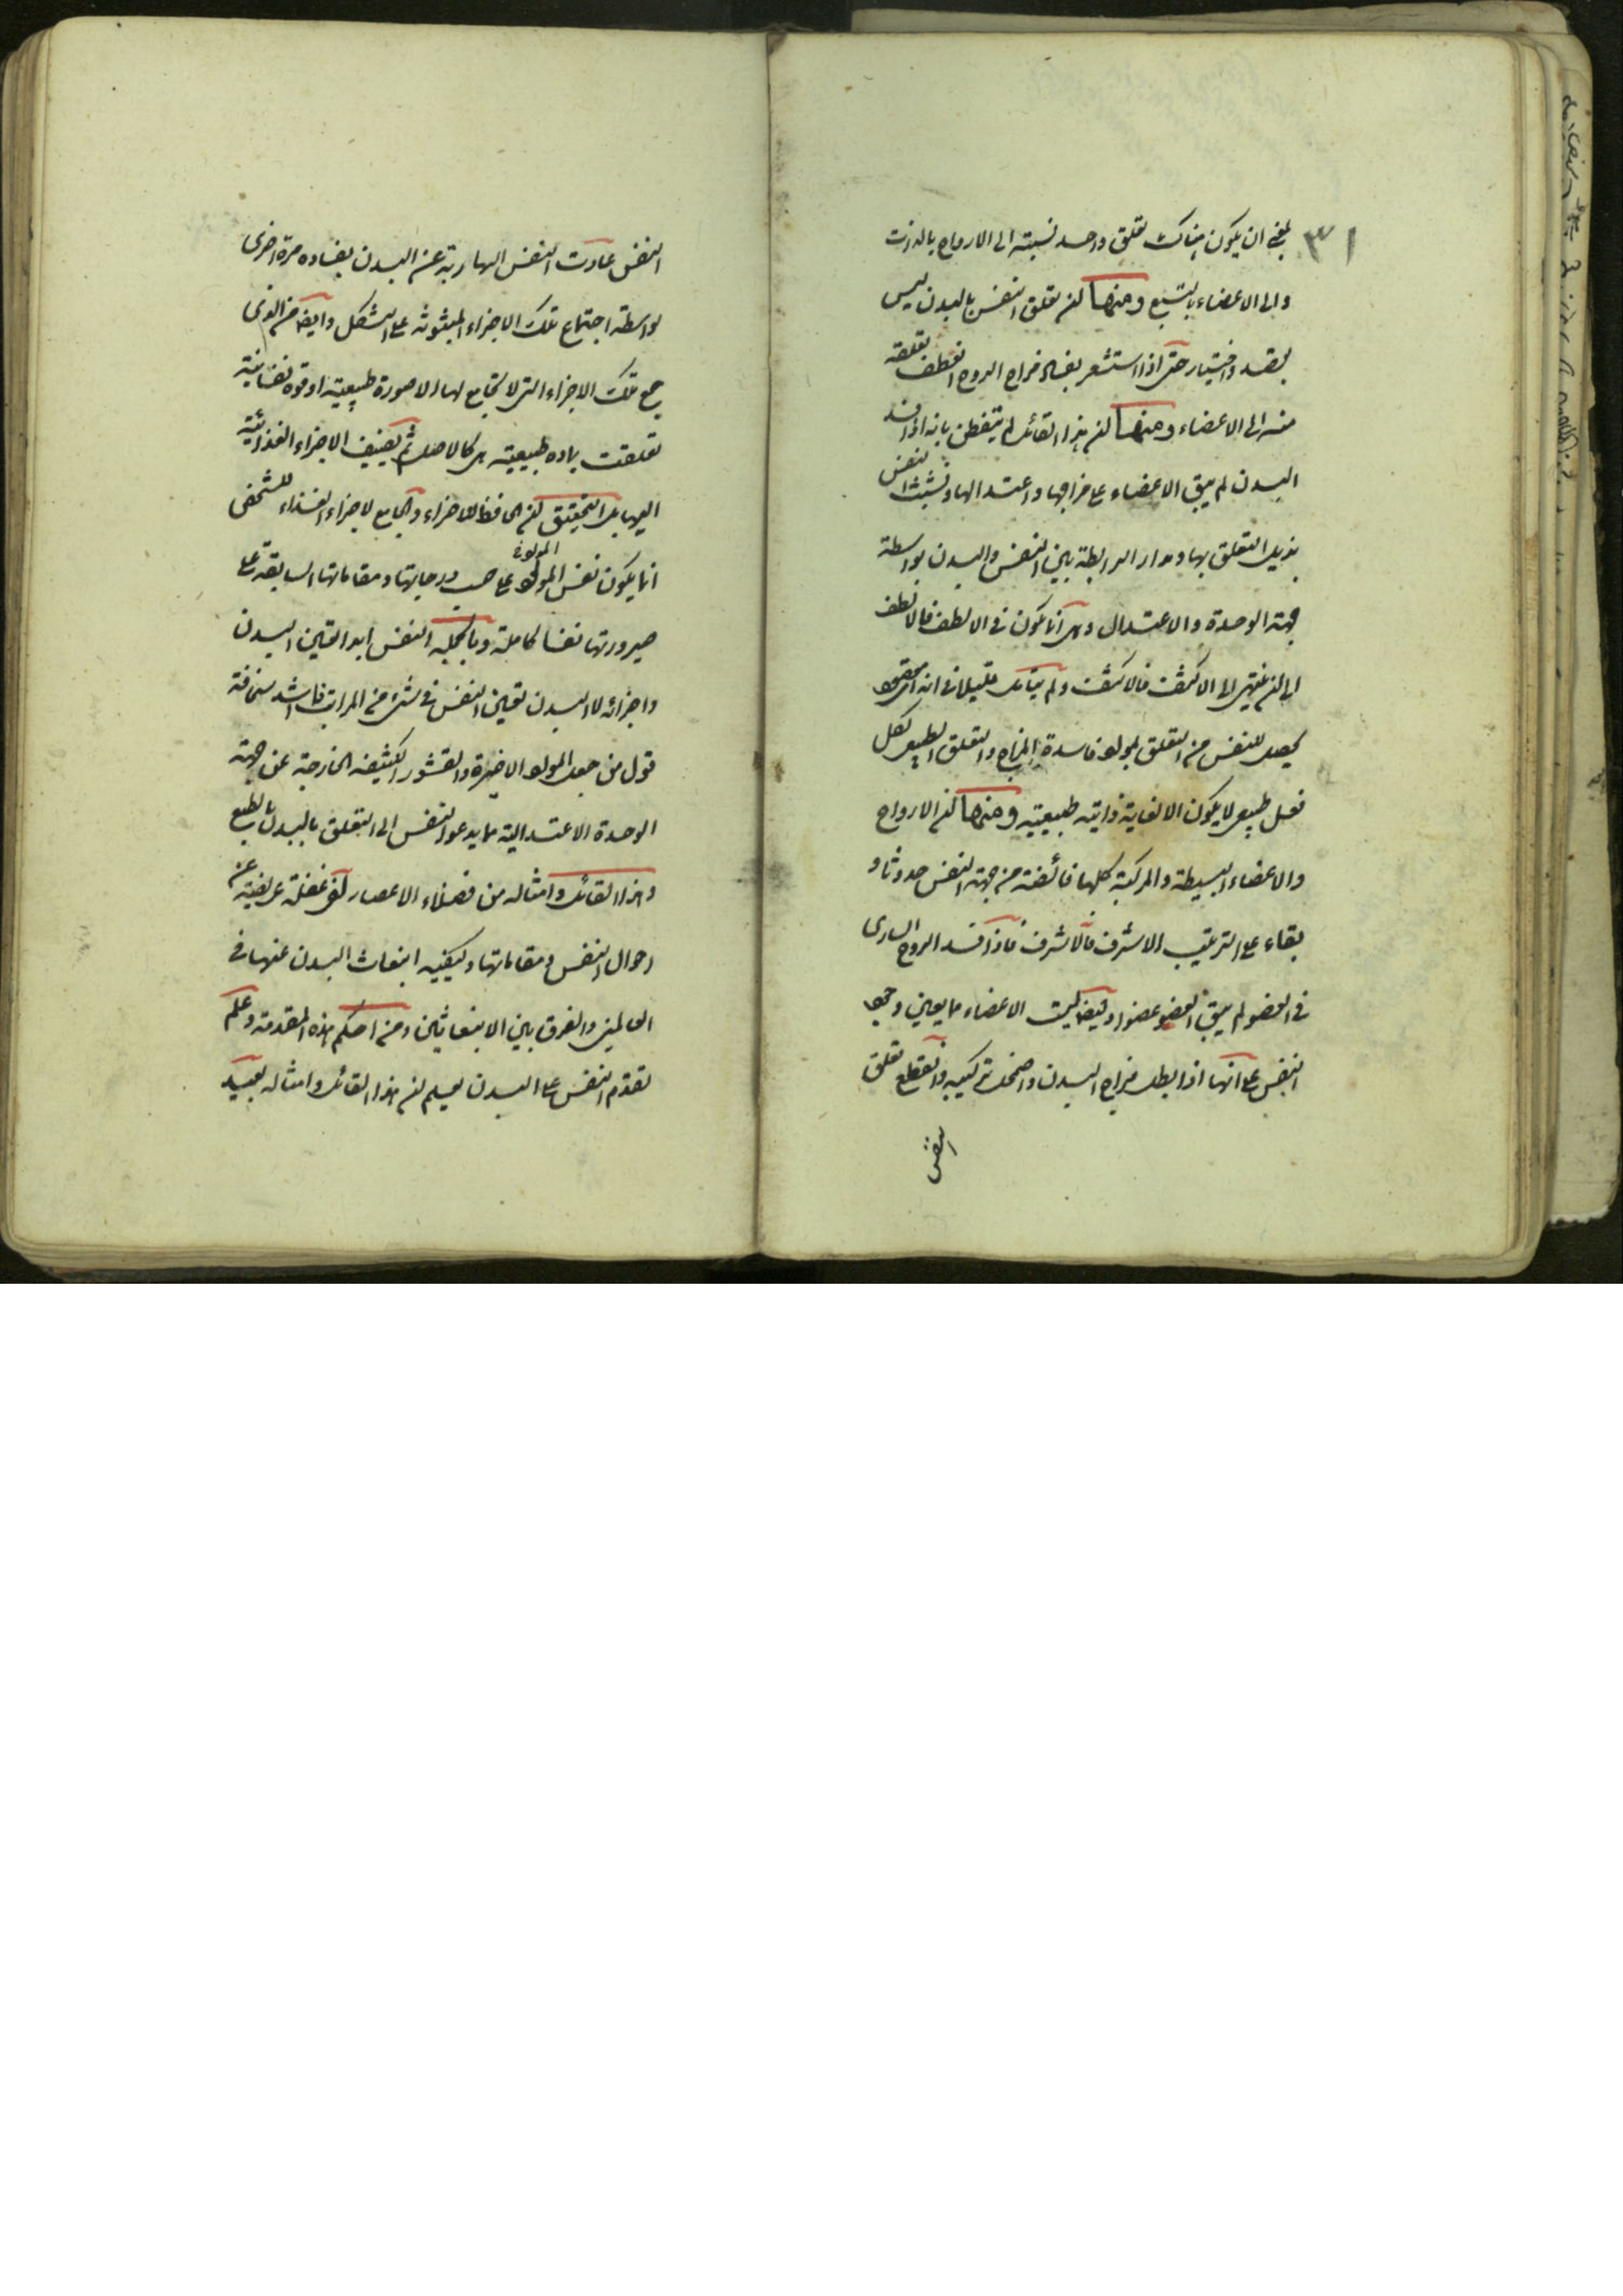 ٣١
بل ينبغي ان يكون هناك تعلق واحد نسبته الى الارواح بالذات
والى الاعضاء بالتبع ومنها ان تعلق النفس بالبدن ليس
بقصد واختيار حتى اذا استشعر بفساد مزاج الروح انعطف تعلقه
منه الى الاعضاء ومنها ان هذا القائل لم يتفطن بانه اذا فسد
البدن لم يبق الاعضاء على مزاجها واعتدالها وتشبث النفس
بذيل التعلق بها ومدار الرابطة بين النفس والبدن بواسطة
جهة الوحدة والاعتدال وهي انما يكون في الالطف فالالطف
الى ان ينتهي الى الاكثف فالاكثف ولم يتأمل قليلا في انه اي مقصود
يحصل للنفس من التعلق بمواد فاسدة المزاج والتعلق الطبيعي ككل
فعل طبيعي لا يكون الا لغاية ذاتية طبيعية ومنها ان الارواح
والاعضاء البسيطة والمركبة كلها فائضة من جهة النفس حدوثا و
بقاء على الترتيب الاشرف فالاشرف فاذا فسد الروح الساري
في العضو لم يبق العضو عضوا وايضا ليست الاعضاء مما يعين وجود
النفس على انها اذا بطل مزاج البدن واضمحل تركيبه وانقطع تعلق
النفس
النفس عادت النفس الهاربة عن البدن بفساده مرة اخرى
بواسطة اجتماع تلك الاجزاء المبثوثة على الشكل وايضا من الذي
جمع تلك الاجزاء التي لا جامع لها الا صورة طبيعية او قوة نفسانية
تعلقت بمادة طبيعية هي كالاصل ثم يضيف الاجزاء الغذائية
اليها بل التحقيق ان الحافظ للاجزاء والجامع لاجزاء الغذاء للشخص
انما يكون نفس المولود على حسب درجاتها ومقاماتها السابقة على
المولود
صيرورتها نفسا كاملة وبالجملة النفس ابدا تعين البدن
واجزائه لا البدن تعين النفس في شيء من المراتب فما اشد سخافة
قول من جعل المواد الاخيرة والقشور الكثيفة الخارجة عن جهة
الوحدة الاعتدالية مما يدعو النفس الى التعلق بالبدن بالطبع
وهذا القائل وامثاله من فضلاء الاعصار لفي غفلة عريضة عن
احوال النفس ومقاماتها وكيفية انبعاث البدن عنها في
العالمين والفرق بين الانبعاثين ومن احكم هذه المقدمة وعلم
تقدم النفس على البدن يعلم ان هذا القائل وامثاله بعيد